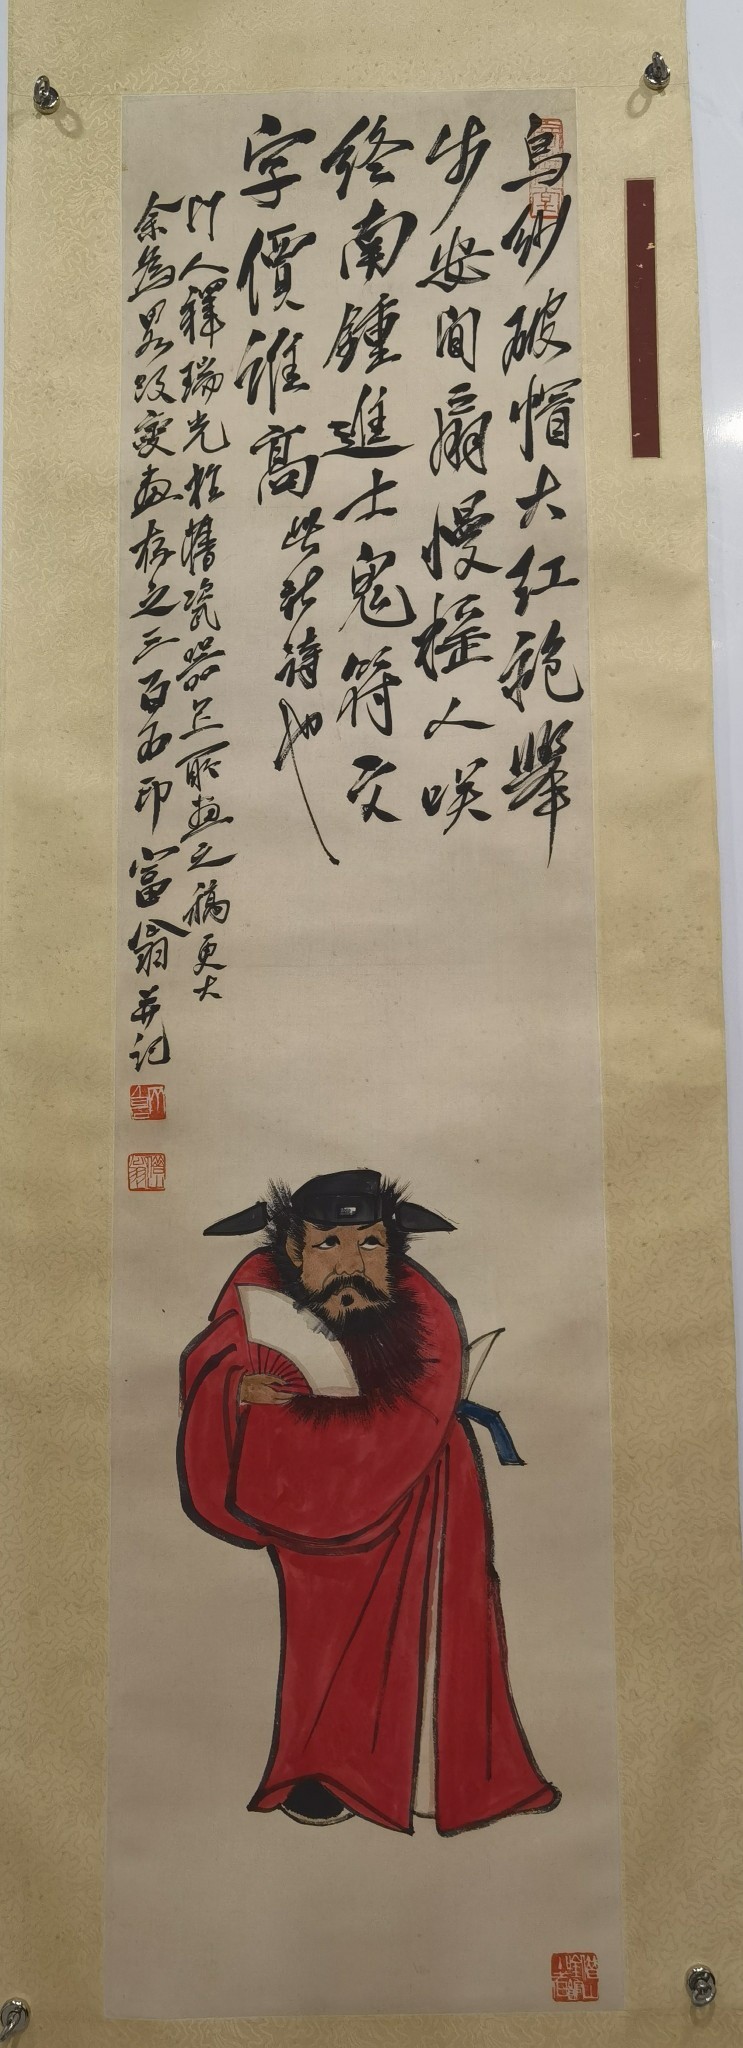 烏紗破帽大紅袍舉
步安閒扇慢搖人笑
終南鍾進士鬼符文
字價誰高此新詩也
門人釋瑞光於舊瓷器上所畫之稿更大
余為畧改變畫存之三百石印富翁并記